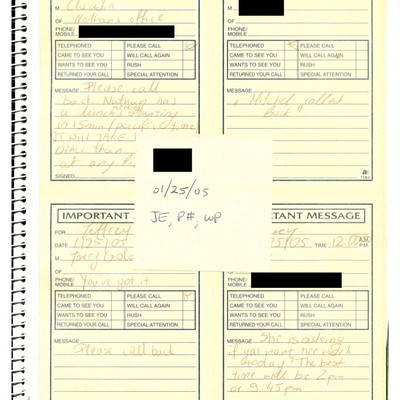 M
OF Nathan's office
PHONE/
MOBILE
TELEPHONED PLEASE CALL
CAME TO SEE YOU WILL CALL AGAIN
WANTS TO SEE YOU RUSH
RETURNED YOUR CALL SPECIAL ATTENTION
MESSAGE Please call
back. Nathan has
a lunch starting
in 15min (pacific time)
IT WILL TAKE
other than
at any
SIGNED
M
OF
PHONE/
MOBILE
TELEPHONED PLEASE CALL
CAME TO SEE YOU WILL CALL AGAIN
WANTS TO SEE YOU RUSH
RETURNED YOUR CALL SPECIAL ATTENTION
MESSAGE
Mitchel
back"
1184
01/25/05
JE, P#, WP
IMPORTANT
FOR Jeffrey
DATE 1/25/05
M
OF
PHONE/
MOBILE You've got it
TELEPHONED PLEASE CALL
CAME TO SEE YOU WILL CALL AGAIN
WANTS TO SEE YOU RUSH
RETURNED YOUR CALL SPECIAL ATTENTION
MESSAGE
Please call back
TANT MESSAGE
25/05 TIME 12:00 A.M.
P.M.
PHONE/
MOBILE
TELEPHONED PLEASE CALL
CAME TO SEE YOU WILL CALL AGAIN
WANTS TO SEE YOU RUSH
RETURNED YOUR CALL SPECIAL ATTENTION
MESSAGE She is asking
if you want her
today? The best
time will be 2pm
or 9:45pm